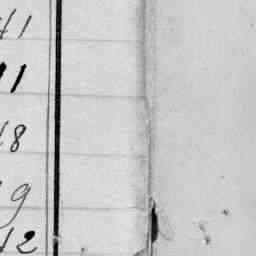 41
11
18
9
12